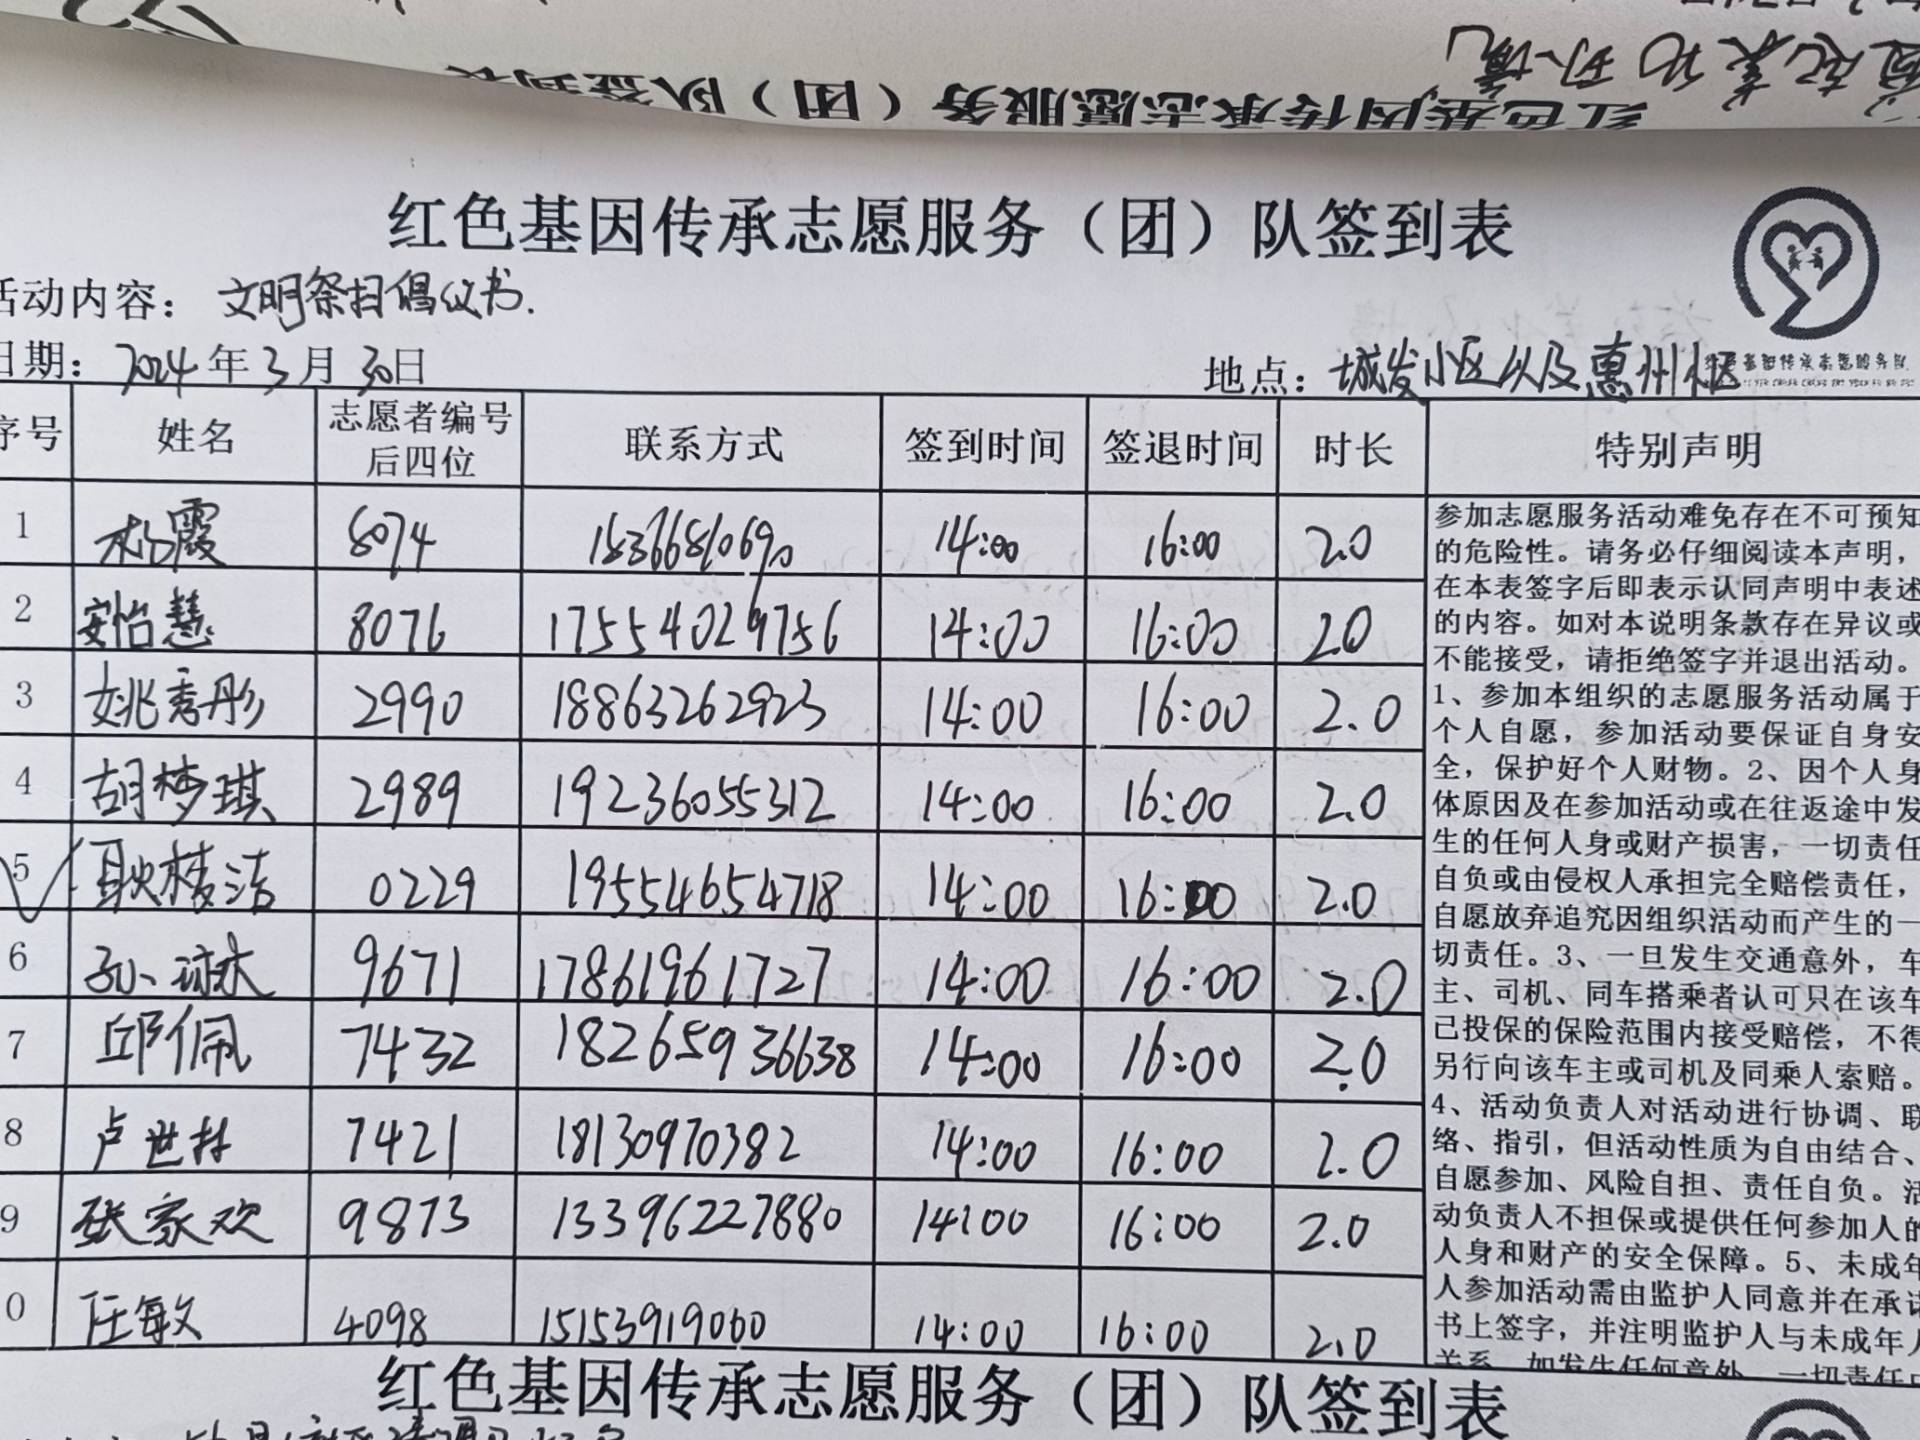 红色基因传承志愿服务（团）队签到表
红色基因传承志愿服务（团）队签到表
活动内容：文明祭扫倡议书.
日期：2024年3月30日 地点：城发小区以及惠州
序号 姓名 志愿者编号后四位 联系方式 签到时间 签退时间 时长 特别声明
1 杨霞 8074 14:00 16:00 2.0
2 安怡慧 8076 17554029756 14:00 16:00 2.0
3 姚秀彤 2990 18863262923 14:00 16:00 2.0
4 胡梦琪 2989 19236055312 14:00 16:00 2.0
5 耿楼洁 0229 19554654718 14:00 16:00 2.0
6 孙琳 9671 17861961727 14:00 16:00 2.0
7 邱佩 7432 18265936638 14:00 16:00 2.0
8 卢世林 7421 18130970382 14:00 16:00 2.0
9 张家欢 9873 13396227880 14:00 16:00 2.0
0 任敏 4098 15153919060 14:00 16:00 2.0
参加志愿服务活动难免存在不可预知
的危险性。请务必仔细阅读本声明，
在本表签字后即表示认同声明中表述
的内容。如对本说明条款存在异议或
不能接受，请拒绝签字并退出活动。
1、参加本组织的志愿服务活动属于
个人自愿，参加活动要保证自身安
全，保护好个人财物。2、因个人身
体原因及在参加活动或在往返途中发
生的任何人身或财产损害，一切责任
自负或由侵权人承担完全赔偿责任，
自愿放弃追究因组织活动而产生的一
切责任。3、一旦发生交通意外，车
主、司机、同车搭乘者认可只在该车
已投保的保险范围内接受赔偿，不得
另行向该车主或司机及同乘人索赔。
4、活动负责人对活动进行协调、联
络、指引，但活动性质为自由结合、
自愿参加、风险自担、责任自负。活
动负责人不担保或提供任何参加人的
人身和财产的安全保障。5、未成年
人参加活动需由监护人同意并在承诺
书上签字，并注明监护人与未成年人
关系，如发生任何意外，一切责任由
红色基因传承志愿服务（团）队签到表